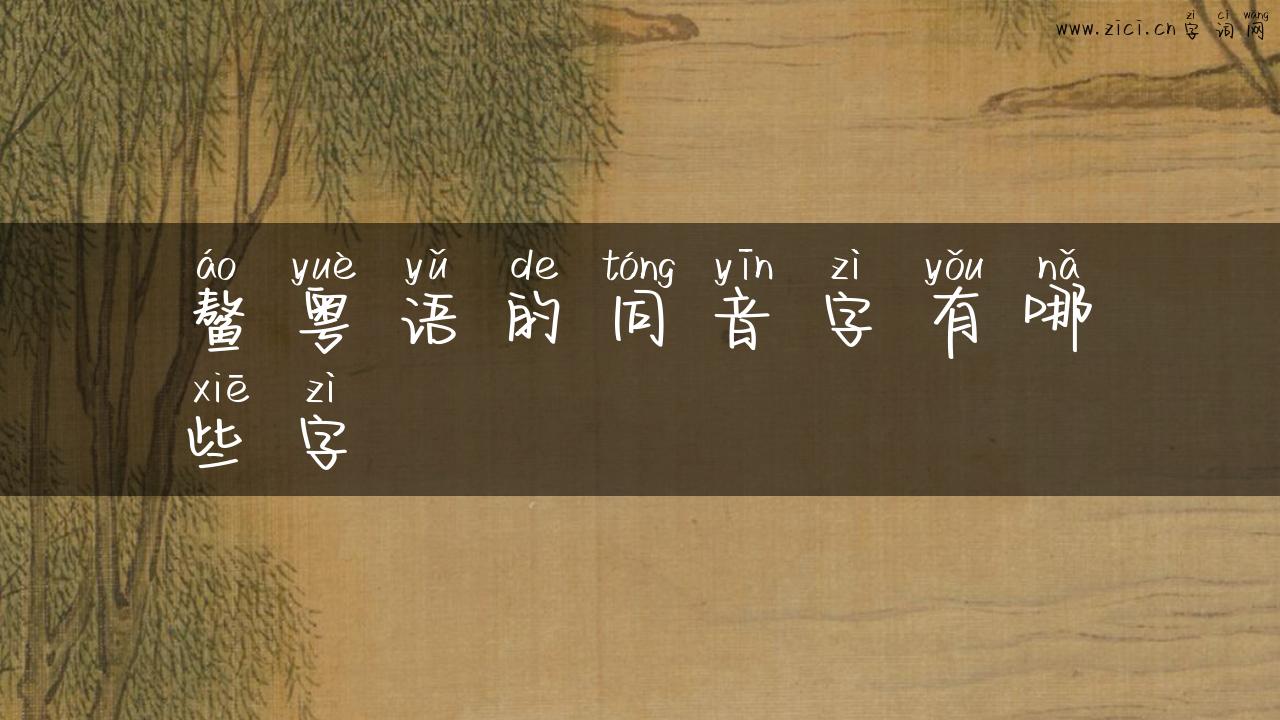 zì cí wǎng
www.zici.cn 字 词 网
áo yuè yǔ de tóng yīn zì yǒu nǎ
鳌 粤 语 的 同 音 字 有 哪
xiē zì
些 字